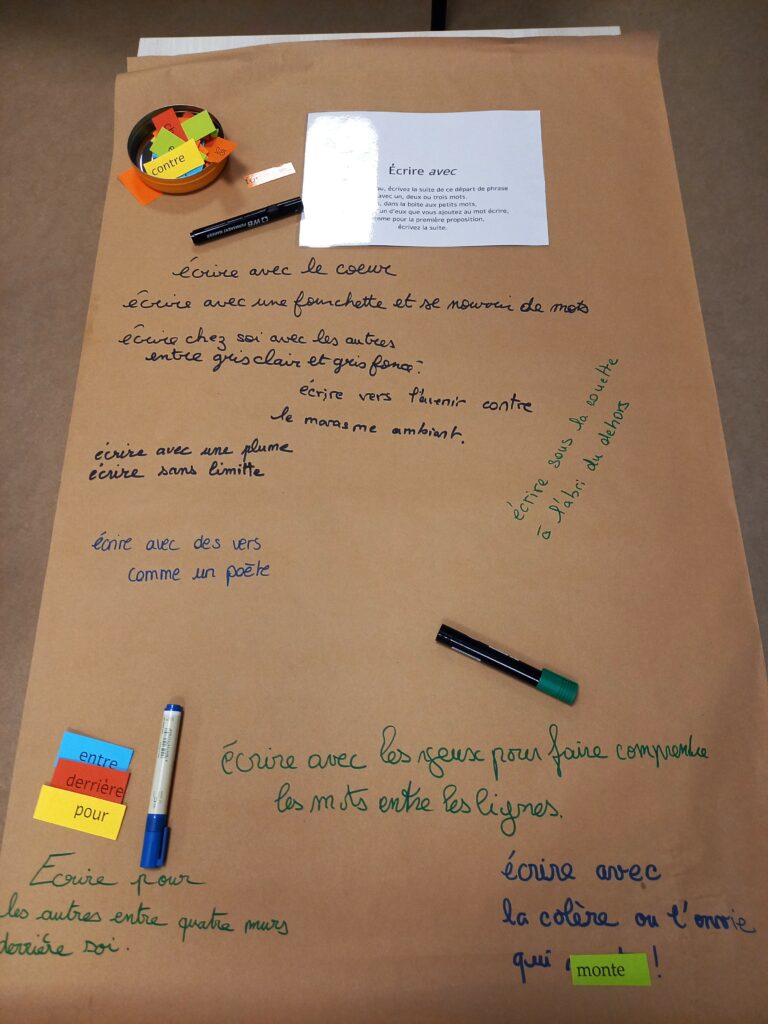 contre
Écrire avec
, écrivez la suite de ce départ de phrase
avec un, deux ou trois mots.
, dans la boîte aux petits mots,
un d'eux que vous ajoutez au mot écrire,
comme pour la première proposition,
écrivez la suite.
PERMANENT MARKER
écrire avec le coeur
écrire avec une fourchette et se nourrir de mots
écrire chez soi avec les autres
entre gris clair et gris foncé.
écrire vers l'avenir contre
le marasme ambiant.
écrire sous la couette
à l'abri du dehors
écrire avec une plume
écrire sans limitte
écrire avec des vers
comme un poète
entre
derrière
pour
écrire avec les yeux pour faire comprendre
les mots entre les lignes.
Ecrire pour
les autres entre quatre murs
derrière soi.
écrire avec
la colère ou l'envie
qui monte !